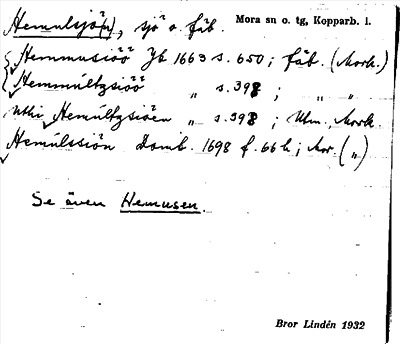 Hemulsjö(n), sjö o. fäb. Mora sn o. tg, Kopparb. l.
Hemmusiöö Jb 1663 s. 650; fäb. (Mork.)
Hemmúltzsiöö " s. 398 ; " "
Uthi Hemúltzsiöen " s. 398 ; Utm., Mork.
Hemúlssiön Domb. 1698 f. 66 ; Mor. (")
Se även Hemusen.
Bror Lindén 1932